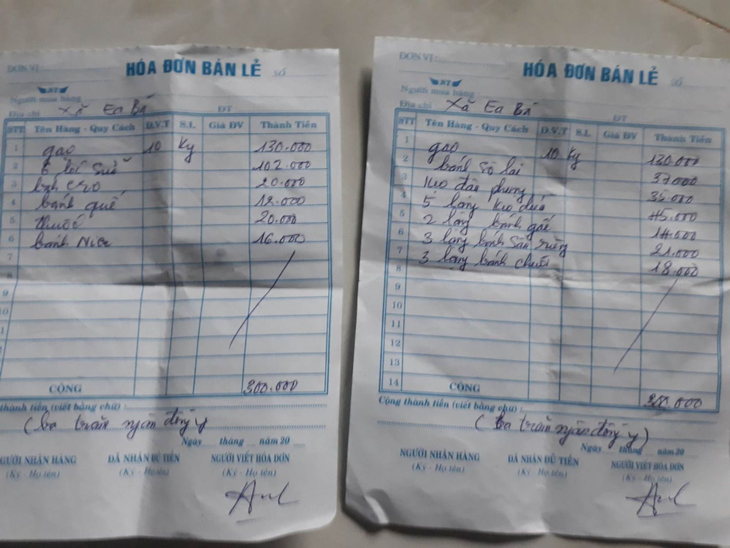 HÓA ĐƠN BÁN LẺ SỐ
ĐƠN VỊ :
NT
Người mua hàng
Địa chỉ Xã Ea Bá ĐT
STT Tên Hàng - Quy Cách Đ.V.T S.L Giá ĐV Thành Tiền
1 gạo 10 Kg 130.000
2 6 lốc sữa 102.000
3 20.000
4 bánh quế 12.000
5 thuốc 20.000
6 bánh 16.000
7
8
9
10
11
12
13
14 CỘNG 300.000
thành tiền (viết bằng chữ) :
(ba trăm ngàn đồng y
Ngày tháng năm 20
NGƯỜI NHẬN HÀNG ĐÃ NHẬN ĐỦ TIỀN NGƯỜI VIẾT HÓA ĐƠN
(Ký - Họ tên) (Ký - Họ tên)
HÓA ĐƠN BÁN LẺ SỐ
ĐƠN VỊ :
NT
Người mua hàng
Địa chỉ Xã Ea Bá ĐT
STT Tên Hàng - Quy Cách Đ.V.T S.L Giá ĐV Thành Tiền
1 gạo 10 Kg 130.000
2 bánh sô la 37.000
kẹo đậu phụng 35.000
4 5 kẹo dừa 45.000
5 2 bánh gấu 14.000
6 3 bánh sầu riêng 21.000
7 3 bánh chuối 18.000
8
9
10
11
12
13
14 CỘNG 300.000
Cộng thành tiền (viết bằng chữ) :
(ba trăm ngàn đồng y)
Ngày tháng năm 20
NGƯỜI NHẬN HÀNG ĐÃ NHẬN ĐỦ TIỀN NGƯỜI VIẾT HÓA ĐƠN
(Ký - Họ tên) (Ký - Họ tên)